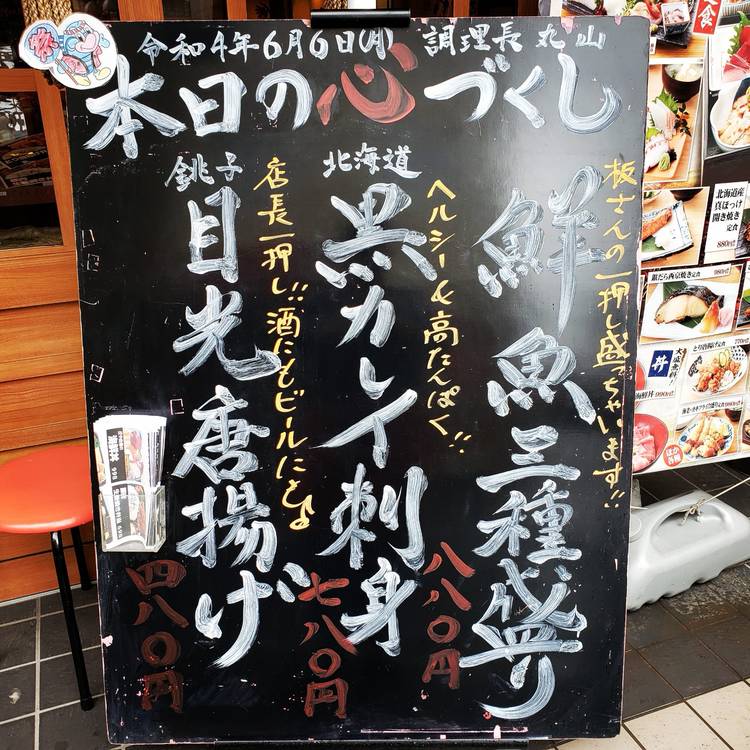 令和4年6月6日(月) 調理長 丸山
本日の心づくし
板さんの一押し盛っちゃいます!!
鮮魚三種盛り
八八〇円
ヘルシー&高たんぱく!!
北海道
黒カレイ刺身
七八〇円
店長一押し!!酒にもビールにも♪
銚子
目光唐揚げ
四八〇円
北海道産
真ほっけ
開き焼き
定食
880円
銀だら西京焼き定食
丼
海鮮丼